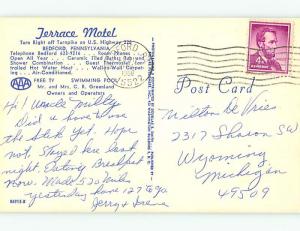 Terrace Motel
Turn Right off Turnpike on U.S. Highway 220
BEDFORD, PENNSYLVANIA
Telephone Bedford 623-9216 Room Phones
Open All Year Ceramic Tiled Baths, Tub and
Shower Combination Guest Thermostat Con-
trolled Hot Water Heat Wall-to-Wall Carpet-
ing Air-Conditioned.
AAA FREE TV SWIMMING POOL
Mr. and Mrs. C. R. Greenland
Owners and Operators
Hi! Uncle Milty
Did us have to use
the Stek yet. Hope
not. Stayed here last
night. Eating Breakfast
now. Made 520 miles
yesterday have 127 to go
Jerry & Irene
BEDFORD
Post Card
Milton De Vries
2317 Sharon SW
Wyoming
Michigan
49509